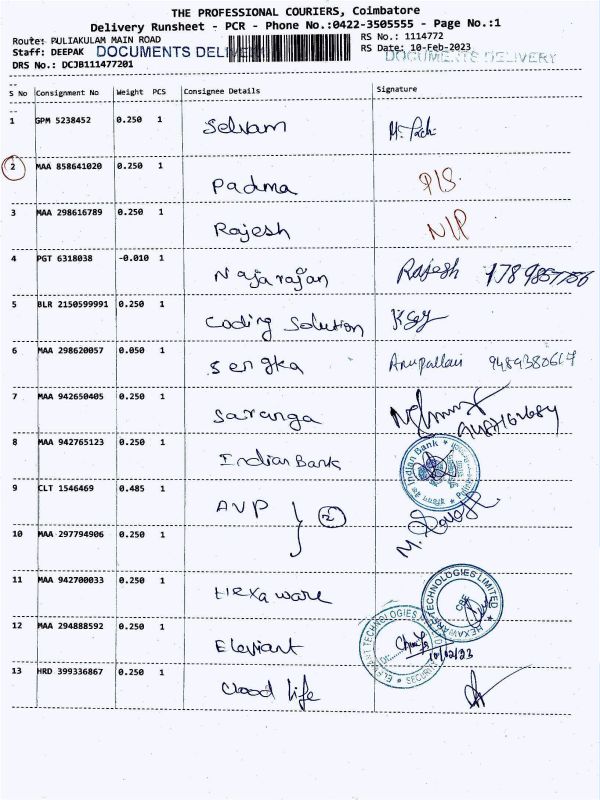 THE PROFESSIONAL COURIERS, Coimbatore
Delivery Runsheet - PCR - Phone No.:0422-3505555 - Page No.:1
Route: PULIAKULAM MAIN ROAD
RS No.: 1114772
Staff: DEEPAK DOCUMENTS DELIVERY
RS Date: 10-Feb-2023
DOCUMENTS DELIVERY
DRS No.: DCJB111477201
S No Consignment No Weight PCS Consignee Details Signature
1 GPM 5238452 0.250 1 Selvam
2 MAA 858641020 0.250 1 Padma P/S
3 MAA 298616789 0.250 1 Rajesh N/P
4 PGT 6318038 -0.010 1 Najarajan Rajesh
5 BLR 2150599991 0.250 1 Coding Solution
6 MAA 298620057 0.050 1 Sengka 9489380617
7 MAA 942650405 0.250 1 Saranga
8 MAA 942765123 0.250 1 Indian Bank
Indian Bank
9 CLT 1546469 0.485 1 AVP 2
10 MAA 297794906 0.250 1 M.
11 MAA 942700033 0.250 1 Hexaware
HEXAWARE TECHNOLOGIES LIMITED
CBE
12 MAA 294888592 0.250 1 Eleviant
TECHNOLOGIES
SECURITY
10/02/23
13 HRD 399336867 0.250 1 Clood life